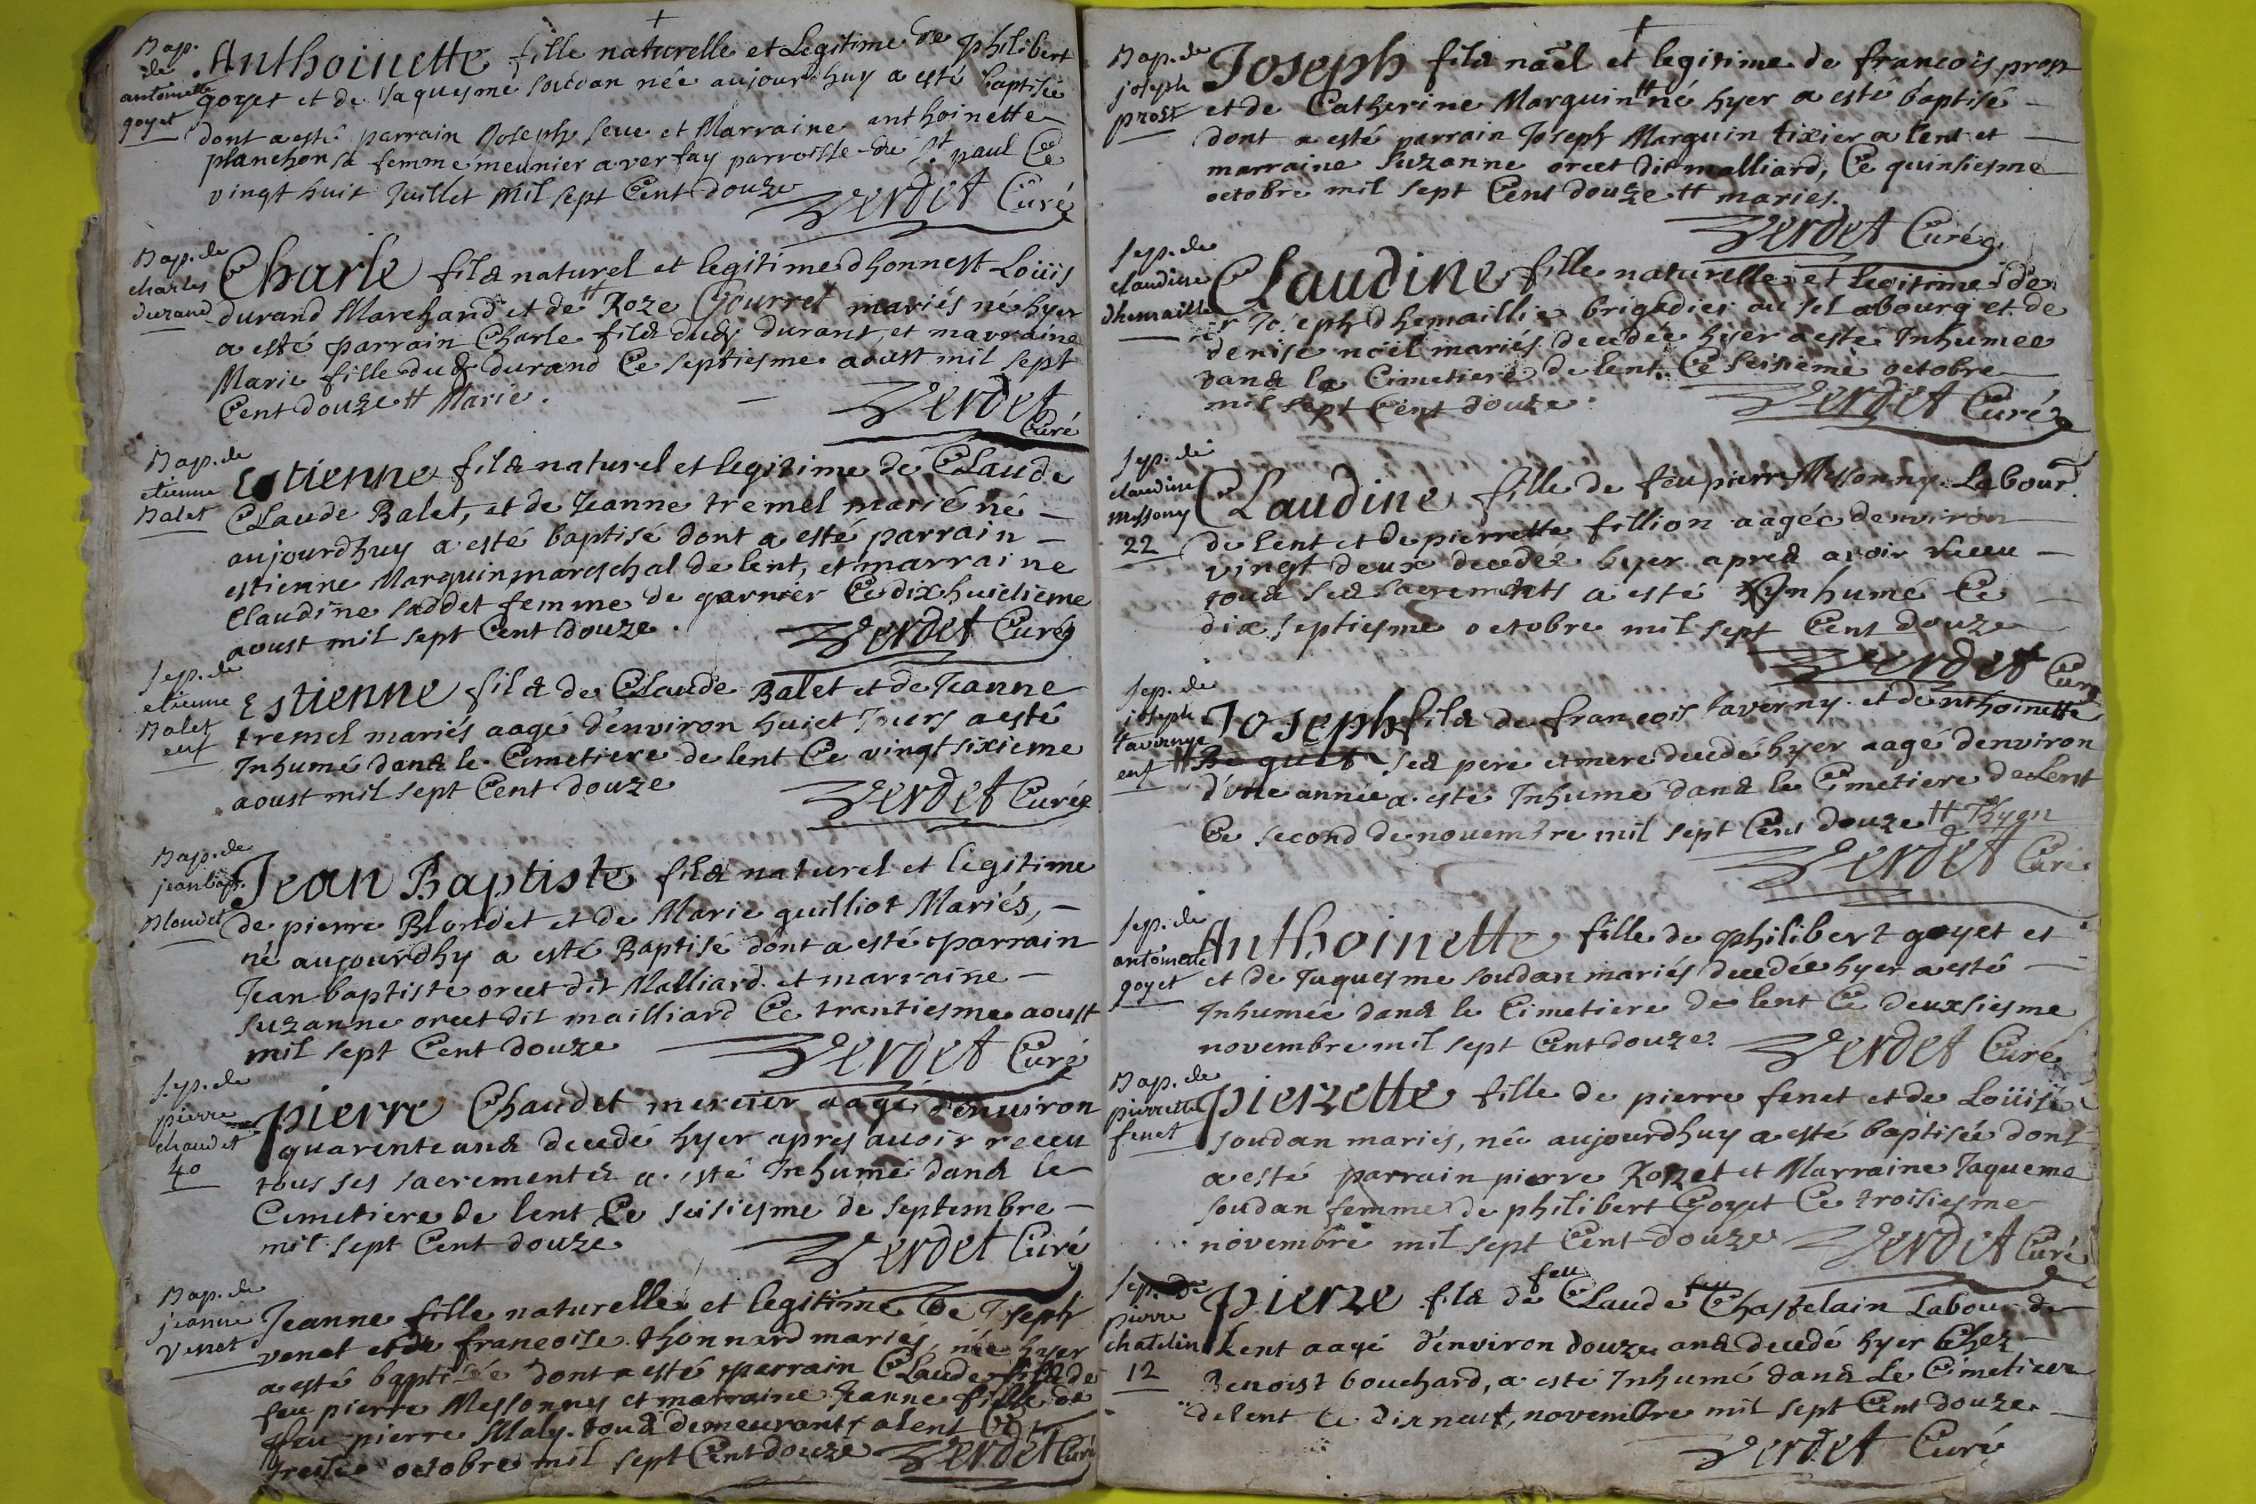 Bap.
de
antoinette
goyet
Anthoinette fille naturelle et Legitime de philibert
goyet et de Jaquesme soudan née aujourdhuy a esté baptisée
dont a esté parrain Joseph seve et Marraine anthoinette
planchon sa femme meunier a verfay parroisse de st paul Ce
vingt huit Juillet Mil sept Cent douze
Verdet Curé
Bap. de
charles
durand
Charle fils naturel et legitime dhonnest Loüis
durand Marchand et de # Roze Gourret mariés né hyer
a esté parrain Charle fils dudt durant, et marraine
Marie fille dudt durand Ce septiesme aoust mil sept
Cent douze # Marie.
Verdet
Curé
Bap. de
etienne
Balet
Estienne fils naturel et legitime de Claude
Claude Balet, et de Jeanne tremel marié né
aujourdhuy a esté baptisé dont a esté parrain
estienne Marguin mareschal de lent, et marraine
Claudine saddet femme de garnier Ce dixhuictieme
aoust mil sept Cent douze.
Verdet Curé
sep. de
etienne
Balet
enf
Estienne fils de Claude Balet et de Jeanne
tremel mariés aagé d'environ huict Jours a esté
Inhumé dans le Cimetiere de lent Ce vingt sixieme
aoust mil sept Cent douze
Verdet Curé
Bap. de
jean bapt.
Blondet
Jean Baptiste fils naturel et legitime
de pierre Blondet et de Marie guilliot Mariés,
né aujourdhy a esté Baptisé dont a esté parrain
Jean baptiste orcet dit Malliard et marraine
suzanne orcet dit mailliard Ce trantiesme aoust
mil sept Cent douze
Verdet Curé
sep. de
pierre
chaudet
40
pierre Chaudet mercier aagé d'environ
quarente ans decedé hyer apres avoir receu
tous ses sacrements a esté Inhumé dans le
Cimetiere de lent Ce seisiesme de septembre
mil sept Cent douze
Verdet Curé
Bap. de
jeanne
Venet
Jeanne fille naturelle et legitime de Joseph
venet et de francoise thonnard mariés, née hyer
a esté baptisée dont a esté parrain Claude fils de
feu pierre Messonny et marraine Jeanne fille de
feu pierre Maly. tous demeurants a lent Ce
treise octobre mil sept Cent douze
Verdet Curé
Bap. de
joseph
prost
Joseph fils nãel et legitime de francois prost
et de Catherine Marguin # né hyer a esté baptisé
dont a esté parrain Joseph Marguin tixier a lent et
marraine suzanne orcet dit malliard, Ce quinsiesme
octobre mil sept Cent douze # mariés.
Verdet Curé
sep. de
claudine
dhemaillie
Claudine fille naturelle et legitime de
sr Joseph dhemaillie brigadier au sel abourg et de
denise noël mariés decedée hyer a esté Inhumee
dans le Cimetiere de lent. Ce seisieme octobre
mil sept Cent douze.
Verdet Curé
sep. de
claudine
messony
22
Claudine fille de feu pierre Messonny Labour.
de lent et de pierrette fillion aagée denviron
vingt deux decedée hyer apres avoir receu
tous ses sacrements a esté Ynhumé Ce
dix septiesme octobre mil sept Cent douze
Verdet Curé
sep. de
joseph
tavernye
enf
Joseph fils de francois taverny. et d'enthoinette
# Beguet ses pere et mere decedé hyer aagé d'environ
d'une année a esté Inhumé dans le Cimetiere de Lent
Ce second de novembre mil sept Cent douze #
Verdet Curé
sep. de
antoinette
goyet
Anthoinette fille de philibert goyet et
et de Jaquesme soudan mariés decedée hyer a esté
Inhumée dans le Cimetiere de lent Ce deuxsiesme
novembre mil sept Cent douze.
Verdet Curé
Bap. de
pierrette
fenet
pierrette fille de pierre fenet et de Loüise
soudan mariés, née aujourdhuy a esté baptisée dont
a esté parrain pierre Rozet et Marraine Jaqueme
soudan femme de philibert Goyet Ce troisiesme
novembre mil sept Cent douze
Verdet Curé
sep. de
pierre
chatelin
12
pierre fils de feu Claude Chastelain Labour. de
Lent aagé d'environ douze ans decedé hyer Chez
Benoist bouchard, a esté Inhumé dans Le Cimetiere
de lent Ce dix neuf, novembre mil sept Cent douze.
Verdet Curé